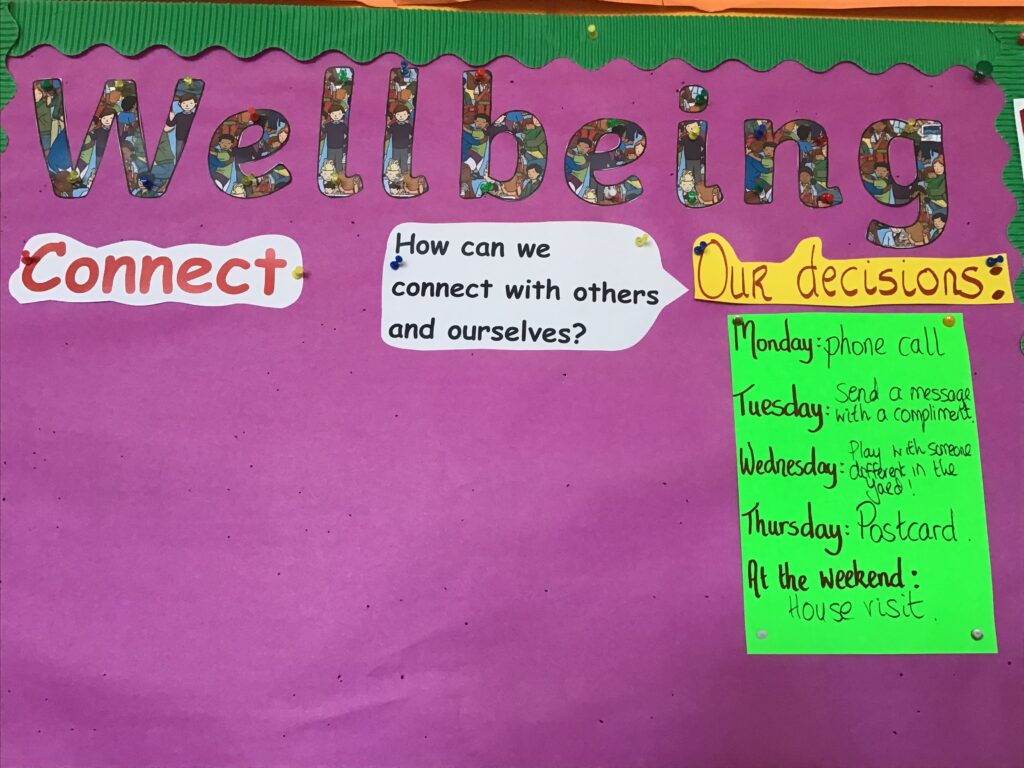 Wellbeing
Connect
How can we
connect with others
and ourselves?
Our decisions:
Monday: phone call
Tuesday: Send a message
with a compliment.
Wednesday: Play with someone
different in the
yard!
Thursday: Postcard.
At the weekend:
House visit.